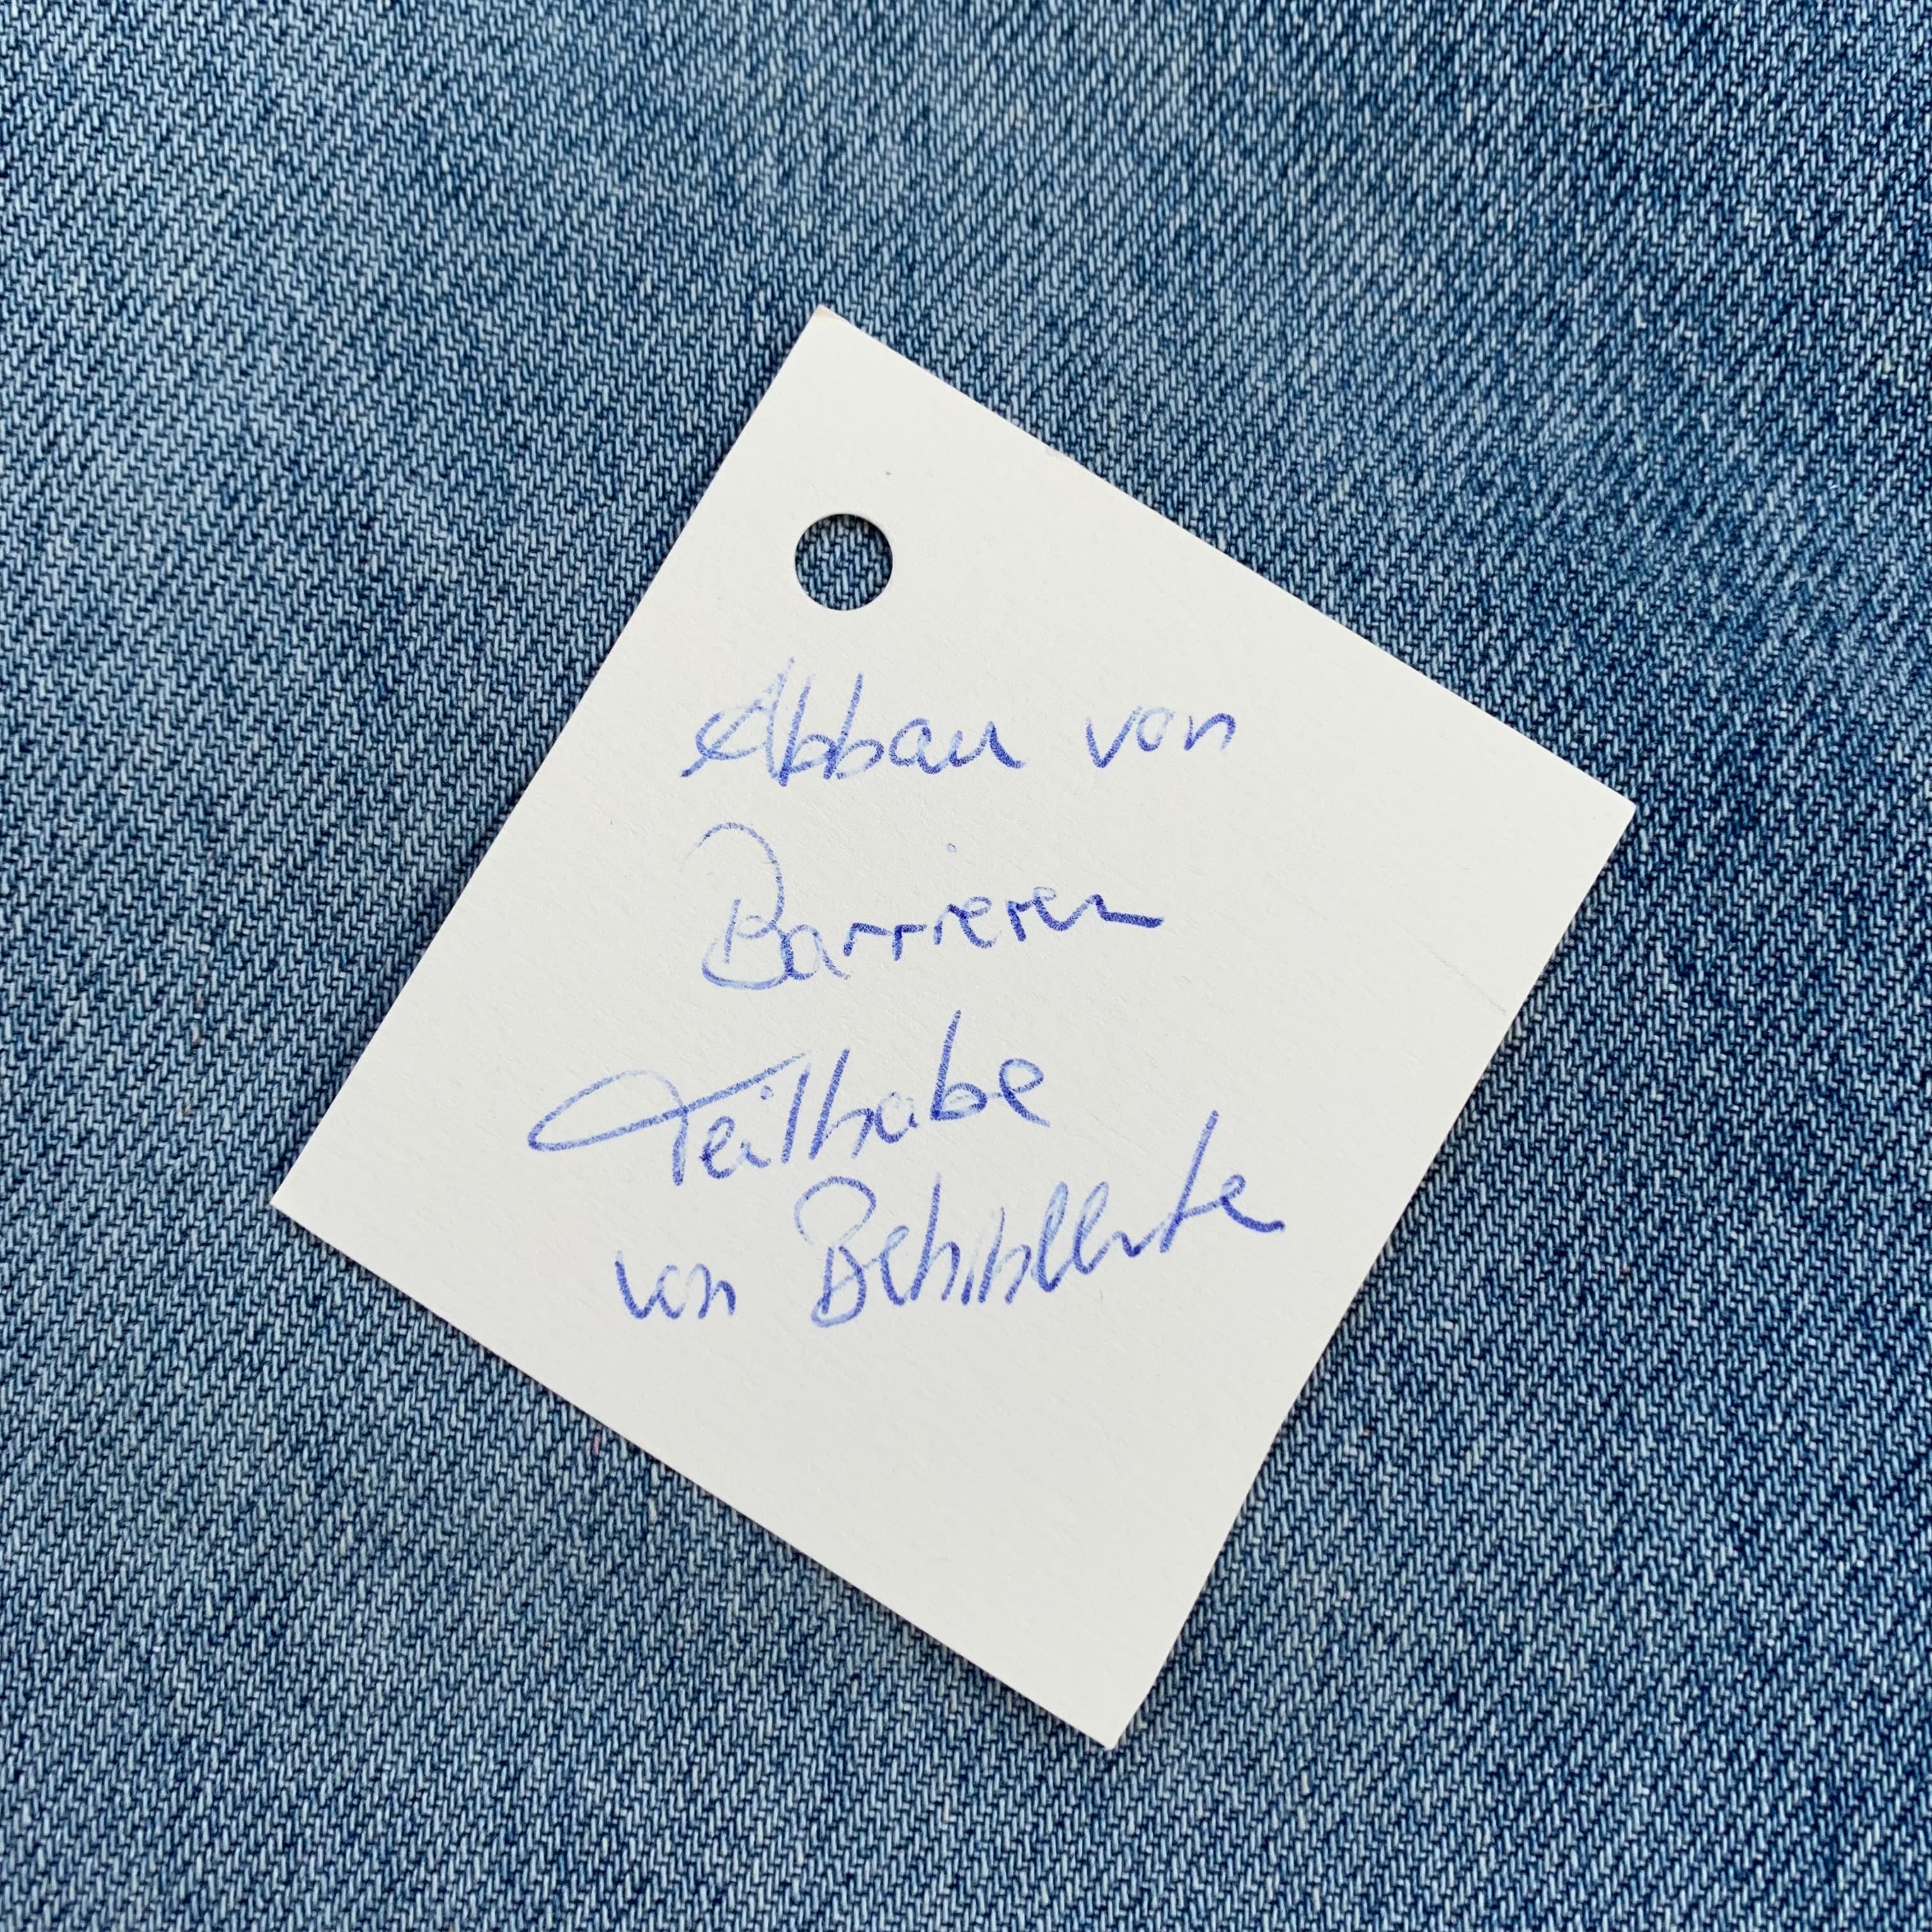 Abbau von
Barrieren
Teilhabe
von